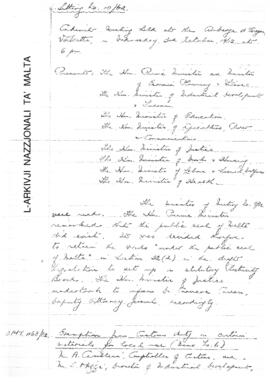 Sitting No. 10/62.
Cabinet Meeting held at the Auberge d'Aragon,
Valletta, on Wednesday 3rd October 1962 at
6 pm.
Present: The Hon. Prime Minister and Minister
of Economic Planning & Finance
The Hon. Minister of Industrial Development
& Tourism
The Hon. Minister of Education
The Hon. Minister of Agriculture, Power
& Communications
The Hon. Minister of Justice
The Hon. Minister of Works & Housing
The Hon. Minister of Labour & Social Welfare
The Hon. Minister of Health
The minutes of Meeting No. 9/62
were read. The Hon. Prime Minister
remarked that the public seal of Malta
did exist. It was decided therefore
to retain the words "under the public seal
of Malta" in Section in the draft
legislation to set up a statutory Electricity
Board. The Hon. Minister of Justice
undertook to inform Dr.
Deputy Attorney General accordingly.
Exemption from Customs duty on certain
materials for local use
Mr A. Comptroller of Customs, and
Mr Director of Industrial Development,
L-ARKIVJI NAZZJONALI TA' MALTA